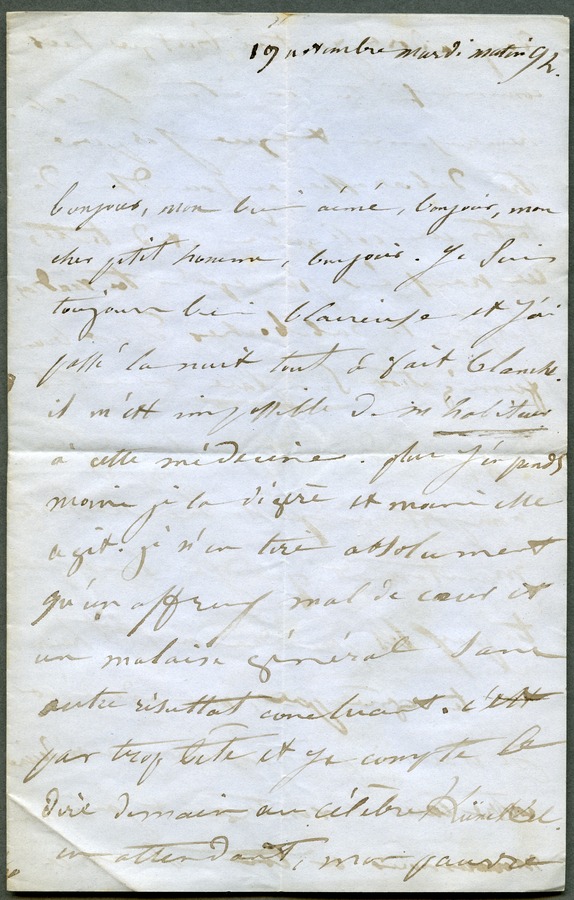 19 novembre mardi matin 9h.
bonjour, mon bien aimé, bonjour, mon
cher petit homme, bonjour. Je suis
toujours bien et j'ai
passé la nuit tout à fait blanche.
il m'est impossible de m'habituer
à cette médecine. plus j'en prends
moins je la digère et moins elle
agit. je n'en tire absolument
qu'un affreux mal de cœur et
un malaise général sans
autre résultat concluant. c'est
par trop bête et je compte le
dire demain au célèbre
en attendant, mon pauvre